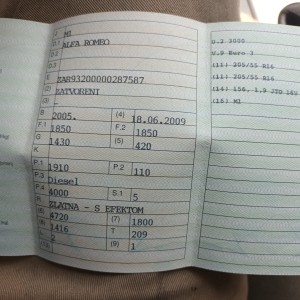 J M1
D.1 ALFA ROMEO
D.2
D.3
E ZAR93200000287587
(2) ZATVORENI
(3) -
B 2005. (4) 18.06.2009
F.1 1850 F.2 1850
G 1430 (5) 420
K
P.1 1910 P.2 110
P.3 Diesel
P.4 4000 S.1 5
R ZLATNA - S EFEKTOM
(6) 4720 (7) 1800
(8) 1416 T 209
(9) 1
U.2 3000
V.9 Euro 3
(11) 205/55 R16
(11) 205/55 R16
(14) 156, 1.9 JTD 16V
(16) M1